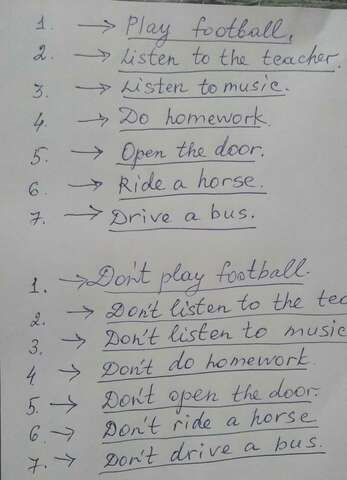 1. → Play football.
2. → Listen to the teacher.
3. → Listen to music.
4 → Do homework
5. → Open the door.
6. → Ride a horse.
7. → Drive a bus.
1. → Don't play football.
2. → Don't listen to the
3. → Don't listen to music
4 → Don't do homework.
5. → Don't open the door.
6 → Don't ride a horse
7. → Don't drive a bus.